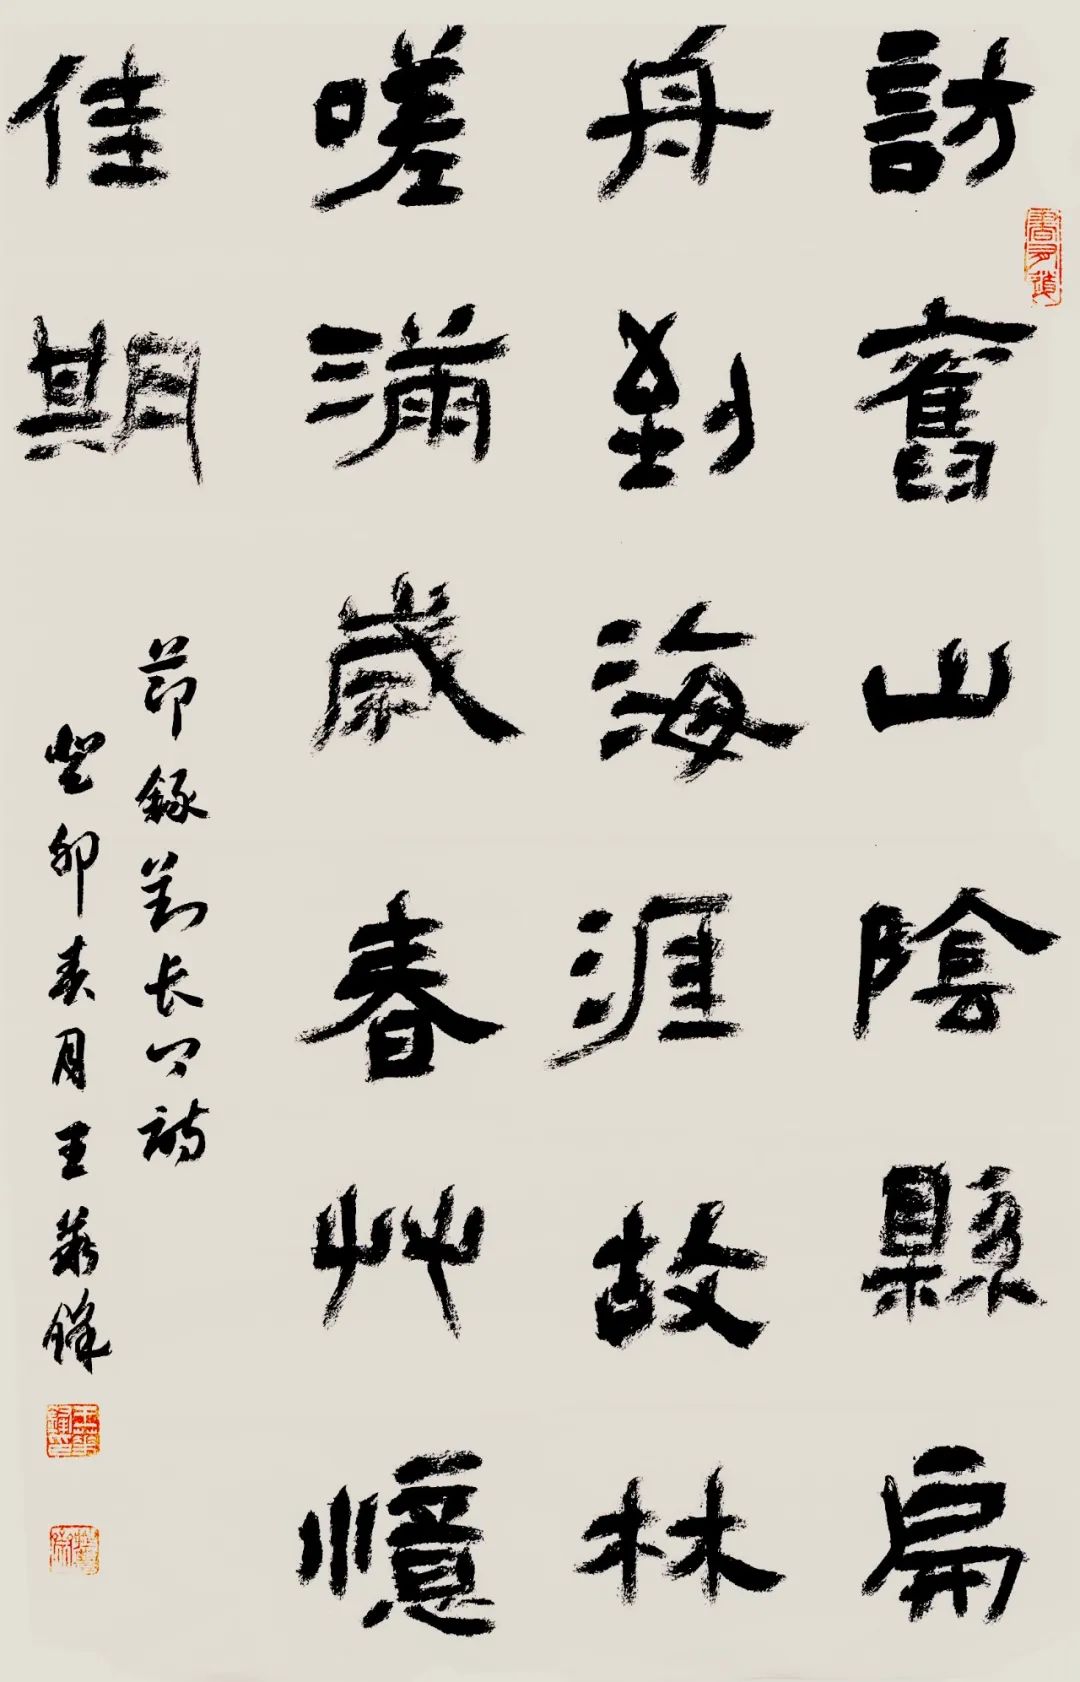 訪舊山陰縣扁
舟到海涯故林
嗟滿歲春艸憶
佳期
節錄劉長卿詩
癸卯春月王華鋒